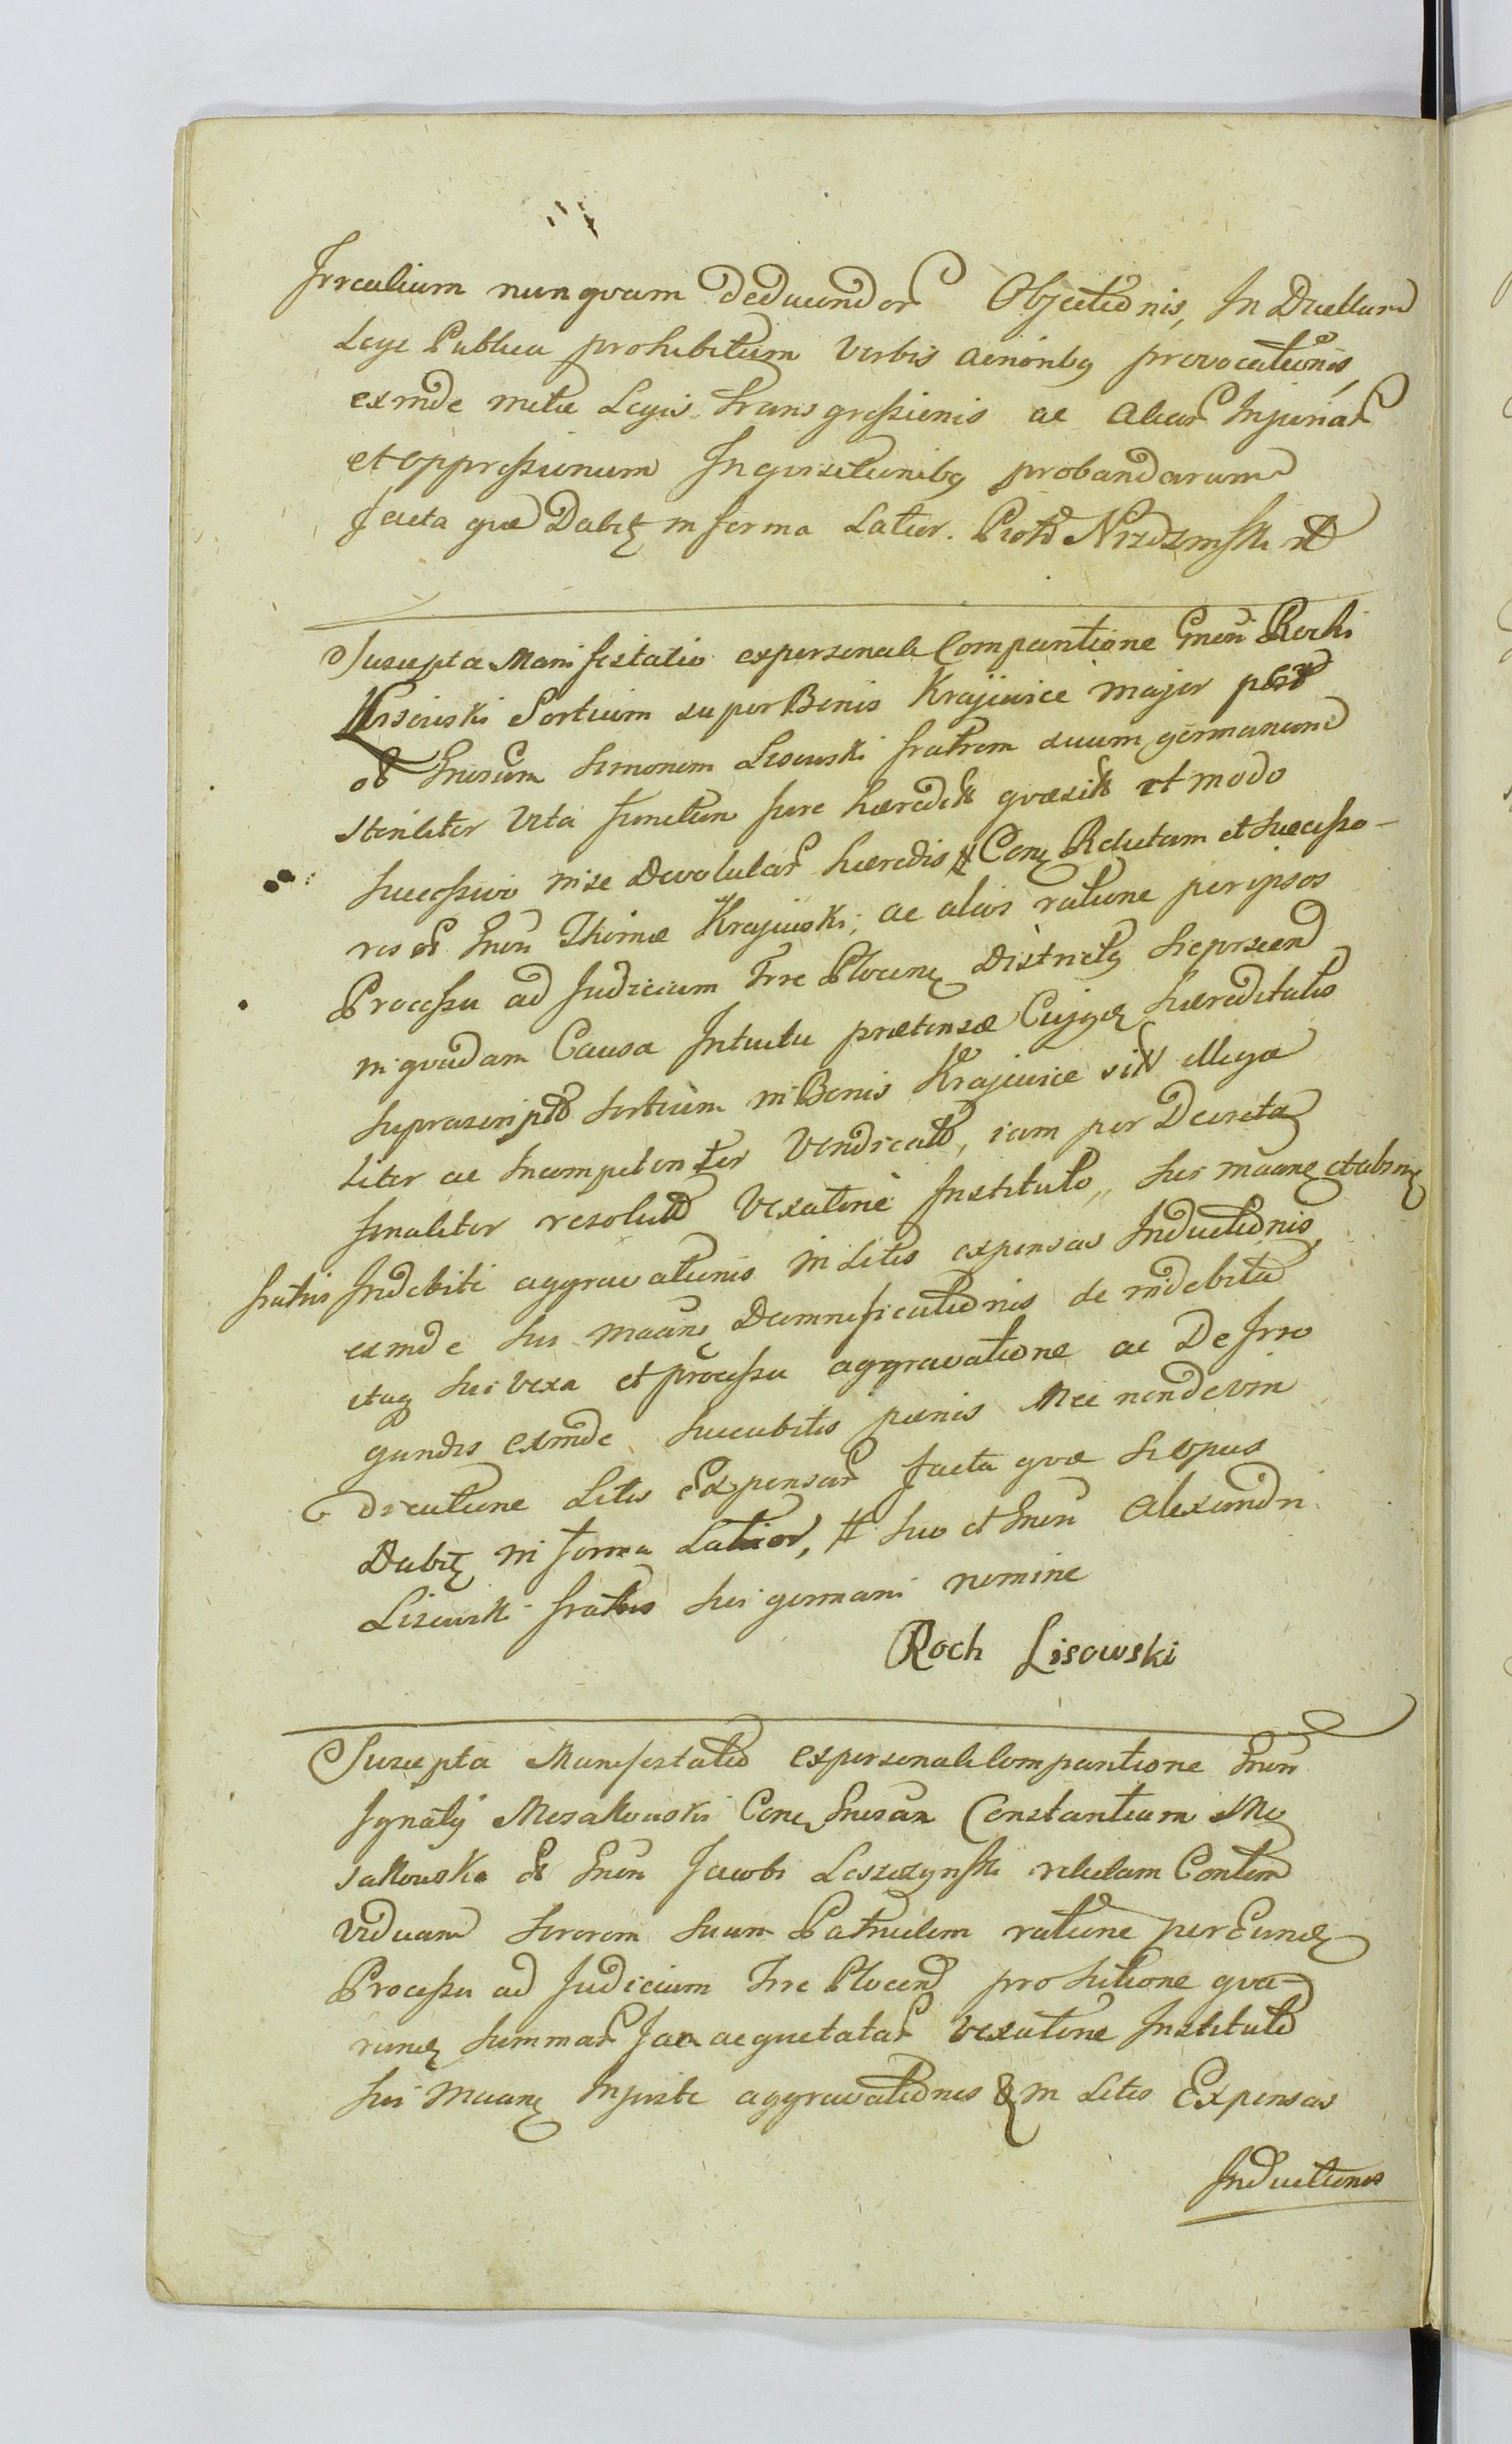 nunquam deducendor Objectionis, In Duellum
Lege Publica prohibitum Verbis provocationis,
exinde metæ Legis transgressionis ac aliar Injuriar
et oppressionum Inquisitionibq probandarum
facta quæ Dabit in forma Latior.
Suscepta Manifestatio ex personali Comparitione Gnēri Rochi
Lisowski Sortium super Bonis Krajewice major
ob Gnērosum Simonem Lisowski fratrem suum germanum
steriliter Vita functum Jure
Successivo in se Devolutar hæredis Relictam et Successo-
res Gnēri Thomæ Krajewski; ac alios ratione per ipsos
Processu ad Judicium Trre Plocens Districtq Sieprscen
in quadam Causa Intuitu prætensæ Cujqz hæreditatis
Suprascript Sortium in Bonis Krajewice illega
liter ac Incompetenter Vendicat, iam per Decreta
finaliter resolut Vexatione Instituto, sui
fratris Indebiti aggravationis in Litis expensas Inductionis,
exinde sui Damnificationis de indebita
itaq sui vexa et processu aggravatione ac De Irro
gandis exinde Succubitis pænis Nec non de vin
dicatione Litis Expensar facta quæ Si Opus
Dabit in forma Latior, suo et Gnēri Alexandri
Lisowski fratris sui germani nomine
Roch Lisowski
Suscepta Manifestatio ex personali Comparitione Gnēri
Ignatij Mosakowski Constantiam Mo
sakowska Gnēri Jacobi Leszczynski relictam
Viduam Sororem suam Patruelem ratione per Eundz
Processu ad Judicium Trre Plocen pro Solutione qua-
rundz Summar Jam acquietatar Vexatione Instituto
sui Injuste aggravationis & in Litis Expensas
Inductionis